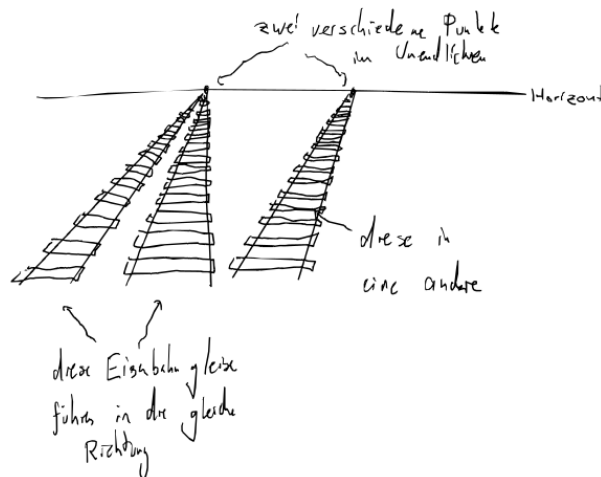 zwei verschiedene Punkte
im Unendlichen
Horizont
diese in
eine andere
diese Eisenbahngleise
führen in die gleiche
Richtung